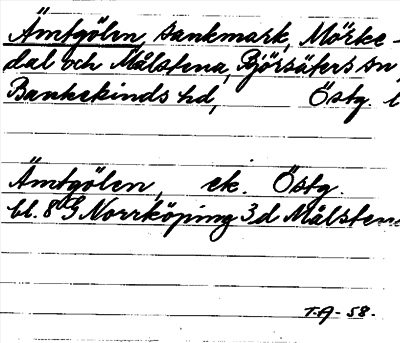 Ämtgölen, sankmark, Mörke-
dal och Målstena, Björsäters sn
Bankekinds hd, Östg. l
Ämtgölen, ek. Östg.
bl. 8 G Norrköping 3d Målstena
T.A-58.